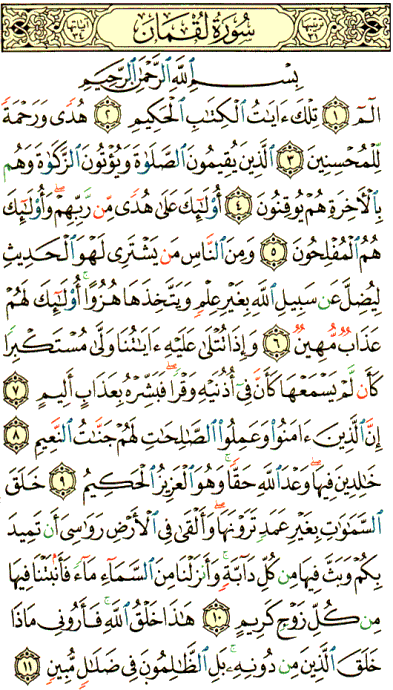 ترتيبها ٣١ سُورَةُ لُقْمَان آياتها ٣٤
بِسْمِ اللَّهِ الرَّحْمَٰنِ الرَّحِيمِ
الٓمٓ ١ تِلْكَ ءَايَٰتُ ٱلْكِتَٰبِ ٱلْحَكِيمِ ٢ هُدًى وَرَحْمَةً
لِّلْمُحْسِنِينَ ٣ ٱلَّذِينَ يُقِيمُونَ ٱلصَّلَوٰةَ وَيُؤْتُونَ ٱلزَّكَوٰةَ وَهُم
بِٱلْءَاخِرَةِ هُمْ يُوقِنُونَ ٤ أُو۟لَٰٓئِكَ عَلَىٰ هُدًى مِّن رَّبِّهِمْ ۖ وَأُو۟لَٰٓئِكَ
هُمُ ٱلْمُفْلِحُونَ ٥ وَمِنَ ٱلنَّاسِ مَن يَشْتَرِى لَهْوَ ٱلْحَدِيثِ
لِيُضِلَّ عَن سَبِيلِ ٱللَّهِ بِغَيْرِ عِلْمٍ وَيَتَّخِذَهَا هُزُوًا ۚ أُو۟لَٰٓئِكَ لَهُمْ
عَذَابٌ مُّهِينٌ ٦ وَإِذَا تُتْلَىٰ عَلَيْهِ ءَايَٰتُنَا وَلَّىٰ مُسْتَكْبِرًا
كَأَن لَّمْ يَسْمَعْهَا كَأَنَّ فِىٓ أُذُنَيْهِ وَقْرًا ۖ فَبَشِّرْهُ بِعَذَابٍ أَلِيمٍ ٧
إِنَّ ٱلَّذِينَ ءَامَنُوا۟ وَعَمِلُوا۟ ٱلصَّٰلِحَٰتِ لَهُمْ جَنَّٰتُ ٱلنَّعِيمِ ٨
خَٰلِدِينَ فِيهَا ۖ وَعْدَ ٱللَّهِ حَقًّا ۚ وَهُوَ ٱلْعَزِيزُ ٱلْحَكِيمُ ٩ خَلَقَ
ٱلسَّمَٰوَٰتِ بِغَيْرِ عَمَدٍ تَرَوْنَهَا ۖ وَأَلْقَىٰ فِى ٱلْأَرْضِ رَوَٰسِىَ أَن تَمِيدَ
بِكُمْ وَبَثَّ فِيهَا مِن كُلِّ دَآبَّةٍ ۚ وَأَنزَلْنَا مِنَ ٱلسَّمَآءِ مَآءً فَأَنۢبَتْنَا فِيهَا
مِن كُلِّ زَوْجٍ كَرِيمٍ ١٠ هَٰذَا خَلْقُ ٱللَّهِ فَأَرُونِى مَاذَا
خَلَقَ ٱلَّذِينَ مِن دُونِهِۦ ۚ بَلِ ٱلظَّٰلِمُونَ فِى ضَلَٰلٍ مُّبِينٍ ١١